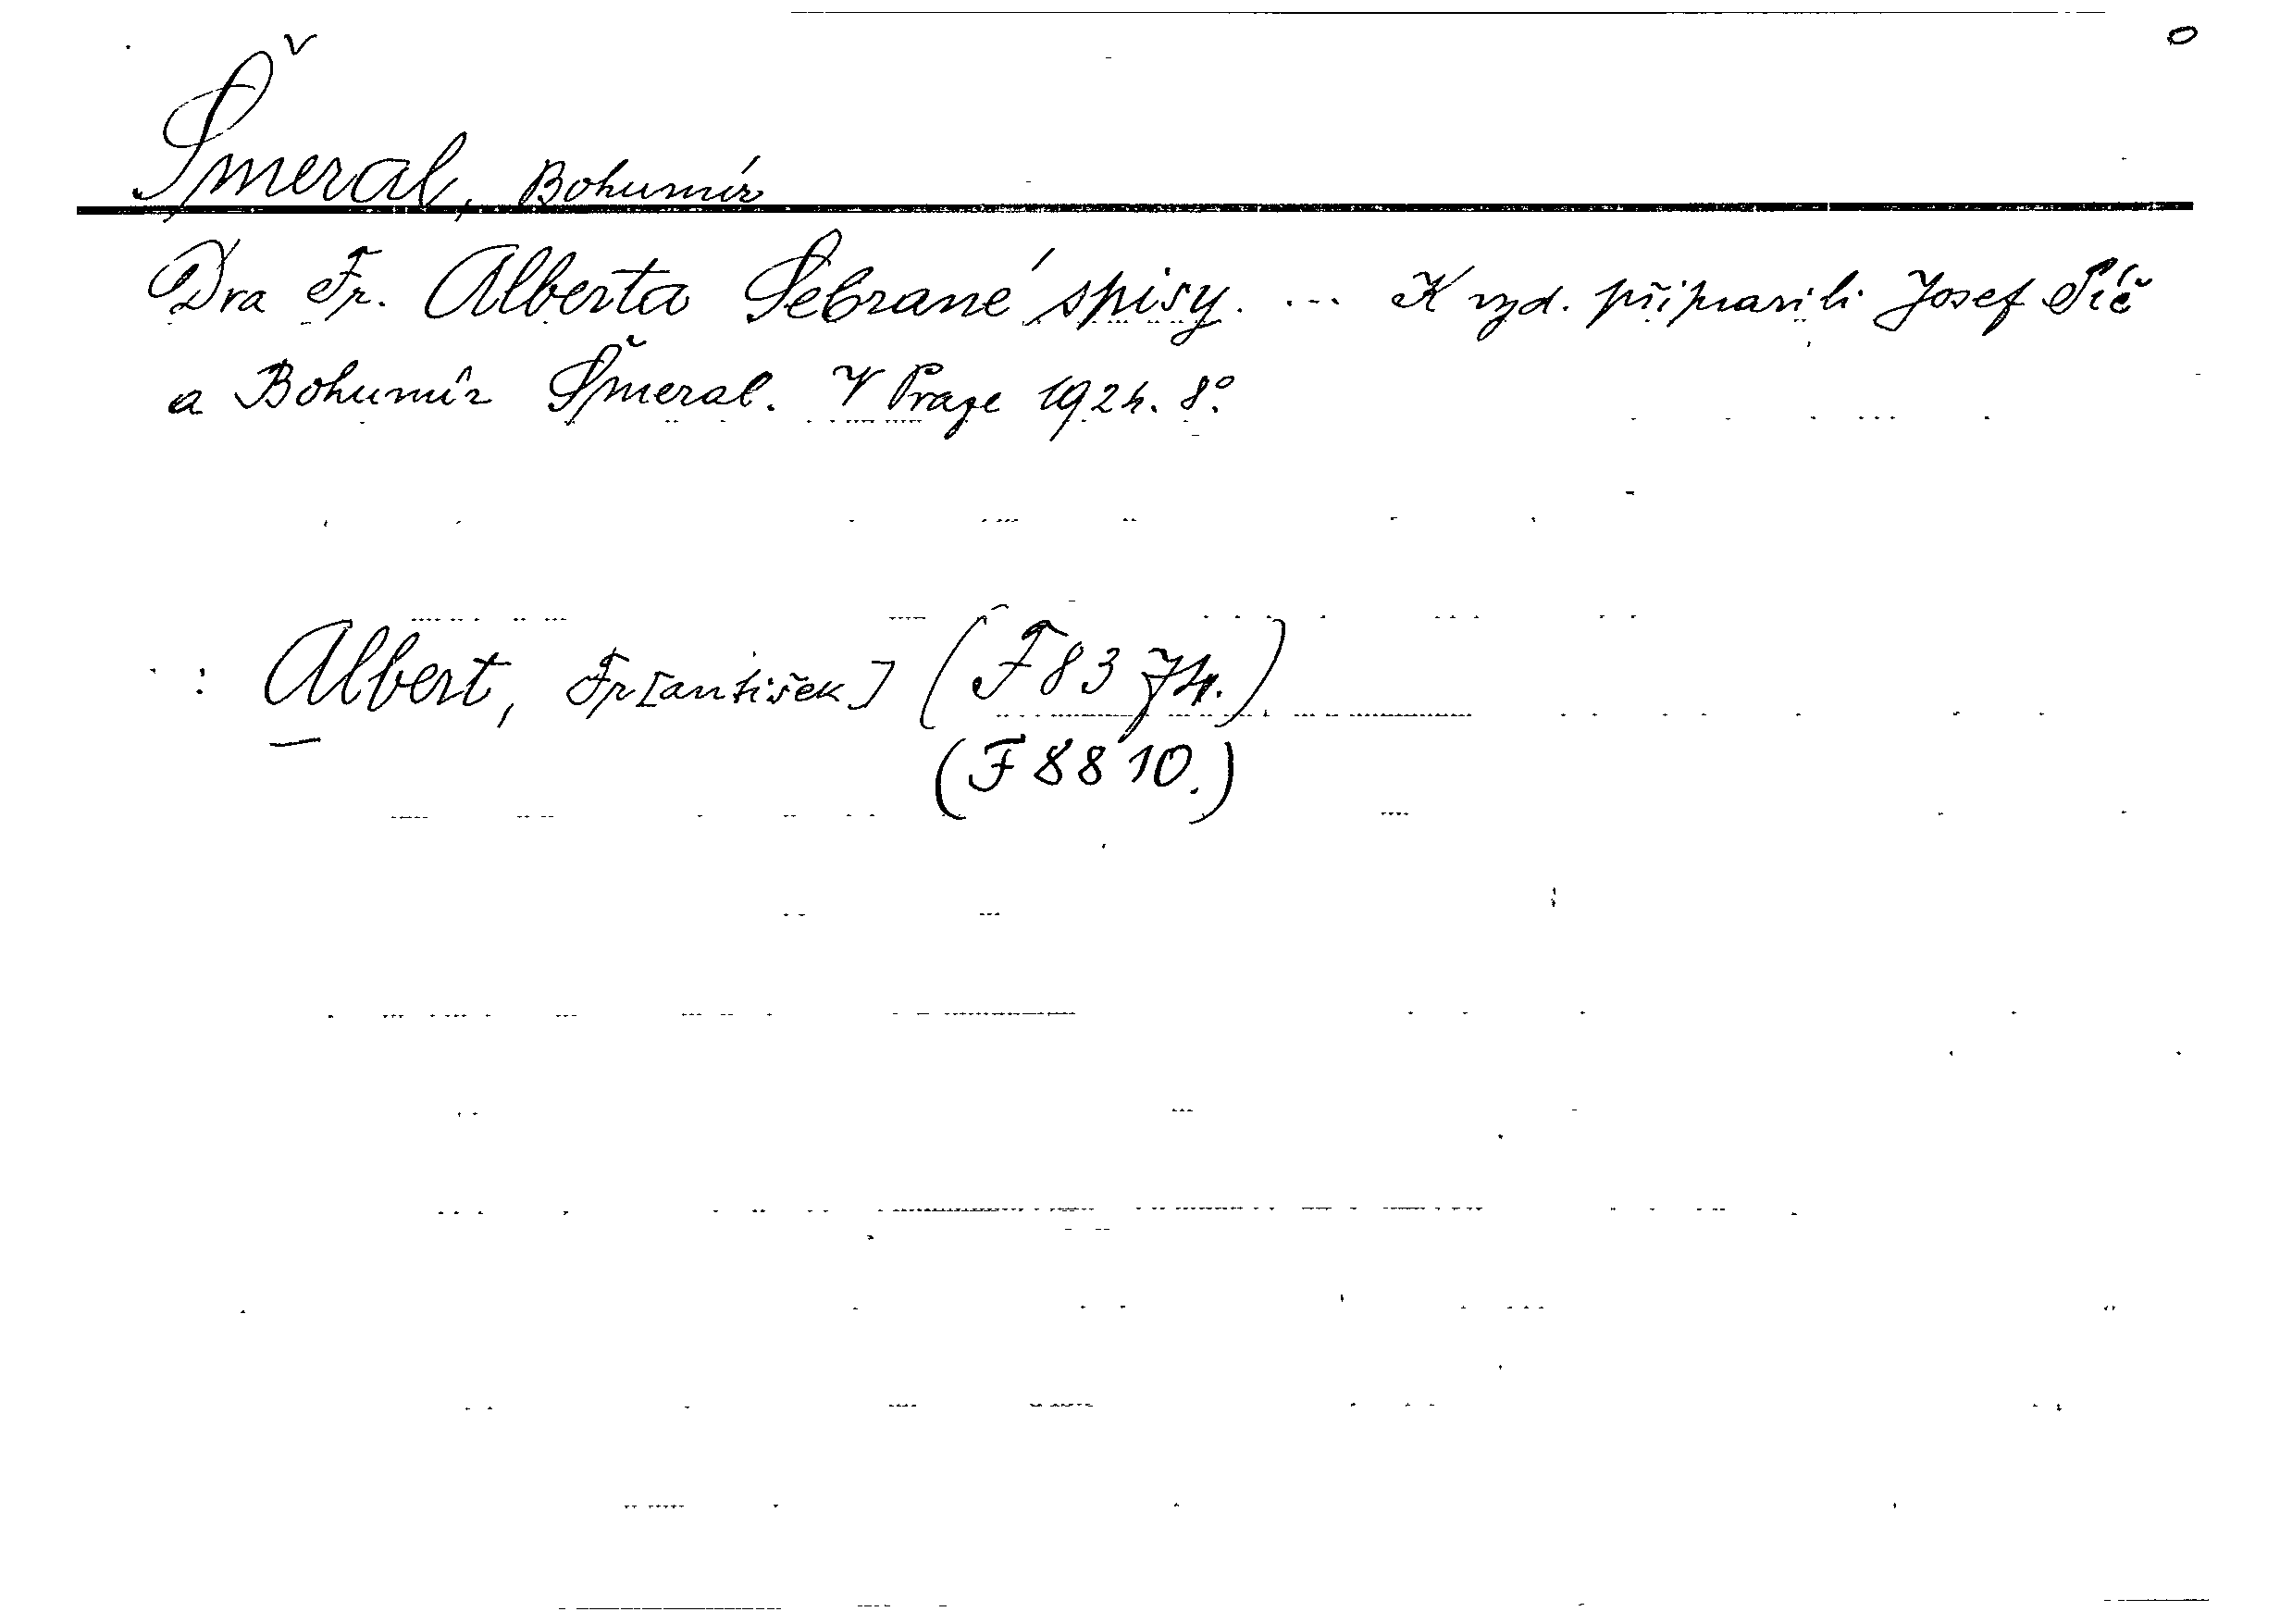 Šmeral, Bohumír
Dra Fr. Alberta Sebrané spisy. ... K vyd. připravili Josef Píč
a Bohumír Šmeral. V Praze 1924. 8°.
: Albert, Fr[antišek] (F 83 74.)
(F 88 10.)